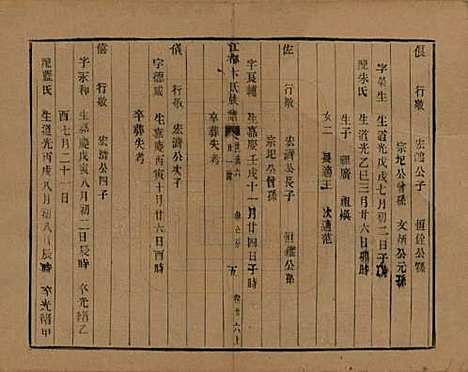 偃 行敬 宏濤公子 恆銓公孫
宗圯公曾孫 文炳公元孫
字英生 生道光戊戌七月初二日子時
配朱氏 生道光乙巳三月廿六日子時
生子 祖廣 祖
女二 長適王 次適范
佐 行敬 宏濟公長子 恆鑑公孫
宗圯公曾孫
字良輔 生嘉慶壬戌十一月廿四日子時
卒葬失考
江都卞氏族譜 五
儀 行敬 宏濟公次子
字德威 生嘉慶丙寅十月廿六日酉時
卒葬失考
僖 行敬 宏濟公四子
字永和 生嘉慶戊寅八月初二日辰時 卒光緒乙
酉七月二十一日
配藍氏 生道光丙戌八月初八日辰時 卒光緒甲